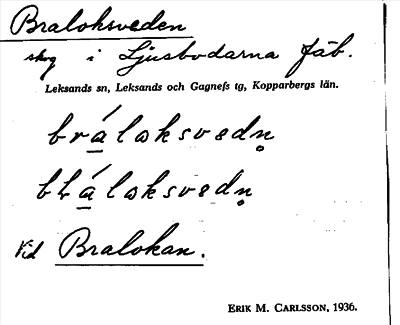 Braloksveden
skog i Ljusbodarna fäb.
Leksands sn, Leksands och Gagnefs tg, Kopparbergs län.
brá̱loksvedn̥
bɫá̱loksvedn̥
vid Bralokan.
ERIK M. CARLSSON, 1936.